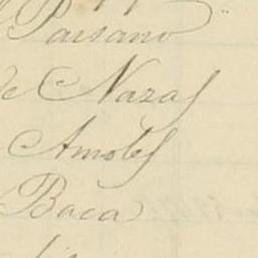 Paisano
de Nazas
Amoles
Baca